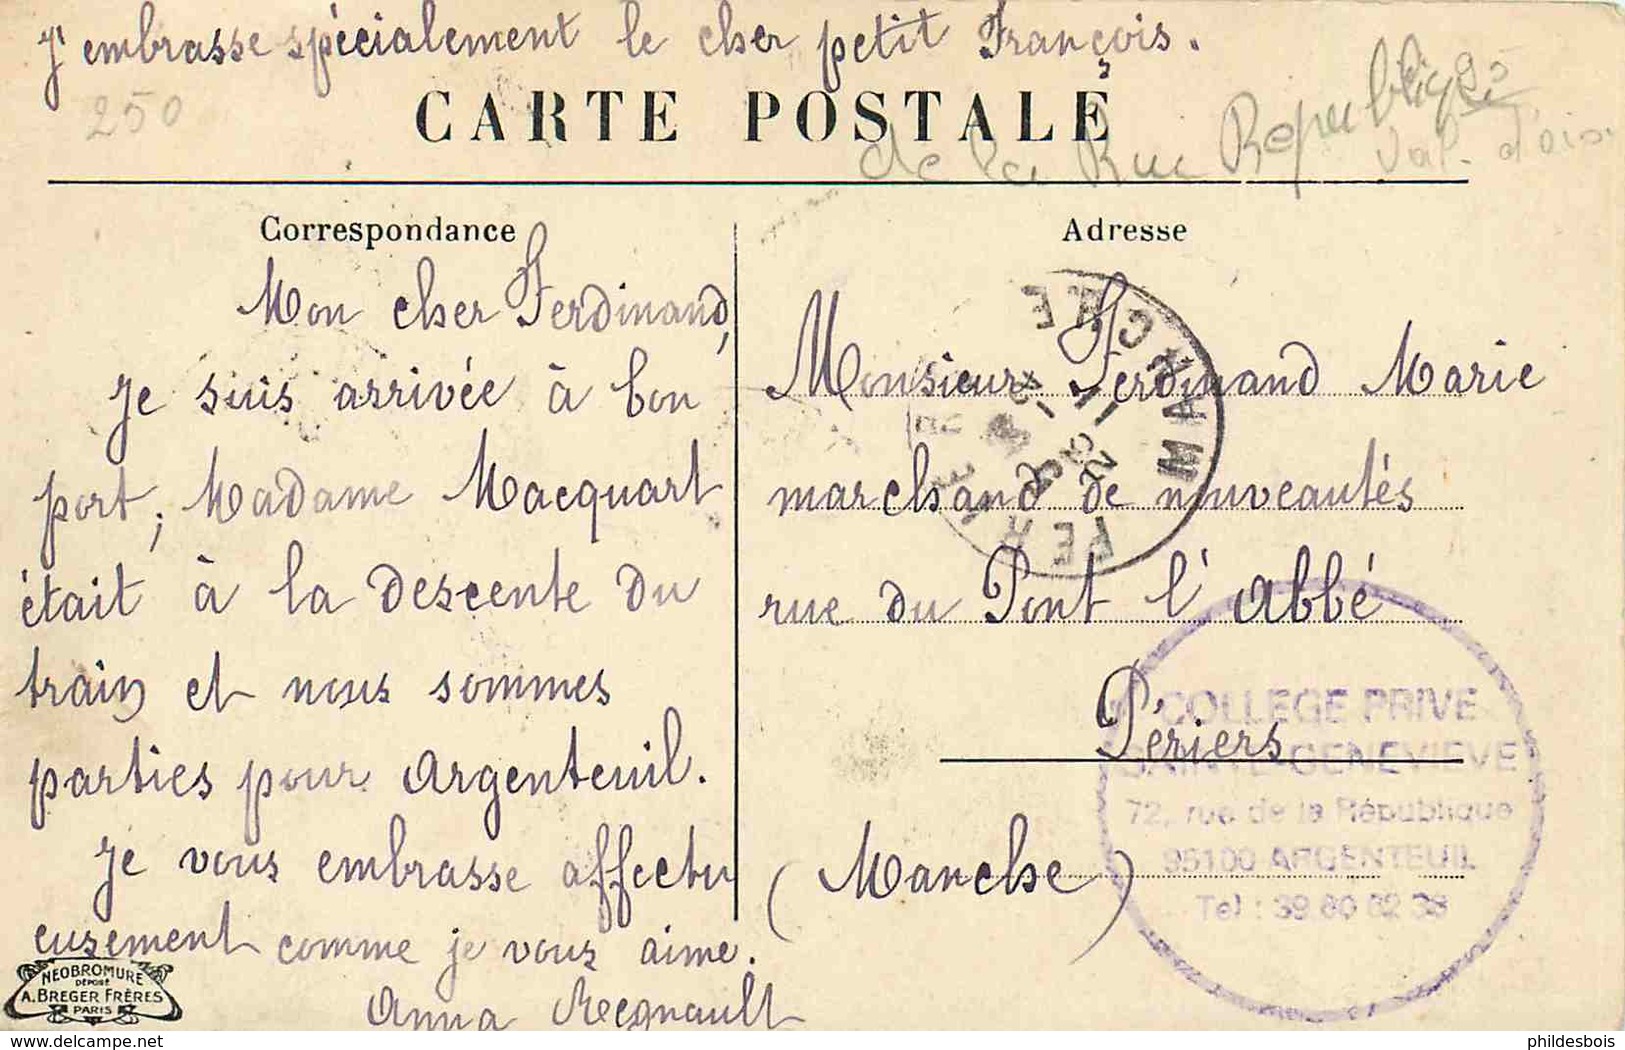 J'embrasse spécialement le cher petit François.
250
CARTE POSTALE
de la Rue Republique 95
Val-d'oise
Correspondance
Mon cher Ferdinand,
Je suis arrivée à bon
port; Madame Macquart
était à la descente du
train et nous sommes
parties pour Argenteuil.
Je vous embrasse affectu
eusement comme je vous aime.
Anna Regnault
NEOBROMURE
DÉPOSÉ
A. BREGER FRÈRES
PARIS
Adresse
Monsieur Ferdinand Marie
marchand de nouveautés
rue du Pont l'Abbé
Périers
(Manche)
COLLEGE PRIVE
SAINTE-GENEVIEVE
72, rue de la République
95100 ARGENTEUIL
Tel : 39 80 62 38
phildesbois